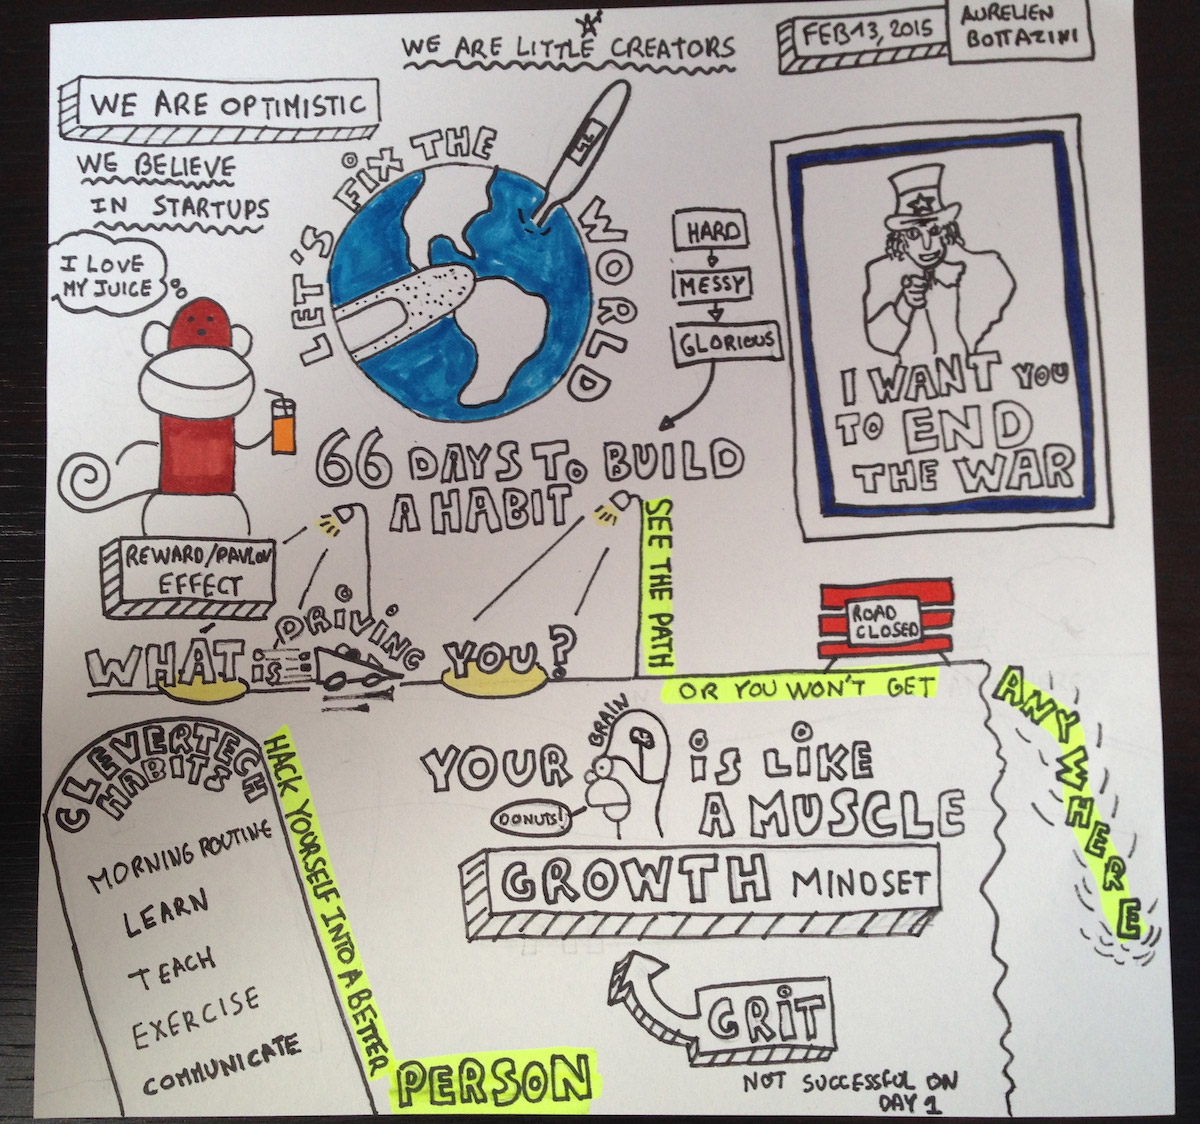 WE ARE LITTLE CREATORS
FEB 13, 2015
AURELIEN
BOTTAZINI
WE ARE OPTIMISTIC
WE BELIEVE
IN STARTUPS
LET'S FIX THE WORLD
I LOVE
MY JUICE
HARD
MESSY
GLORIOUS
I WANT YOU
TO END
THE WAR
66 DAYS TO BUILD
A HABIT
REWARD/PAVLOV
EFFECT
WHAT is DRIVING YOU?
SEE THE PATH
OR YOU WON'T GET
ANYWHERE
ROAD
CLOSED
CLEVERTECH
HABITS
MORNING ROUTINE
LEARN
TEACH
EXERCISE
COMMUNICATE
HACK YOURSELF INTO A BETTER
PERSON
YOUR BRAIN is LiKE
A MUSCLE
DONUTS!
GROWTH MINDSET
GRiT
NOT SUCCESSFUL ON
DAY 1